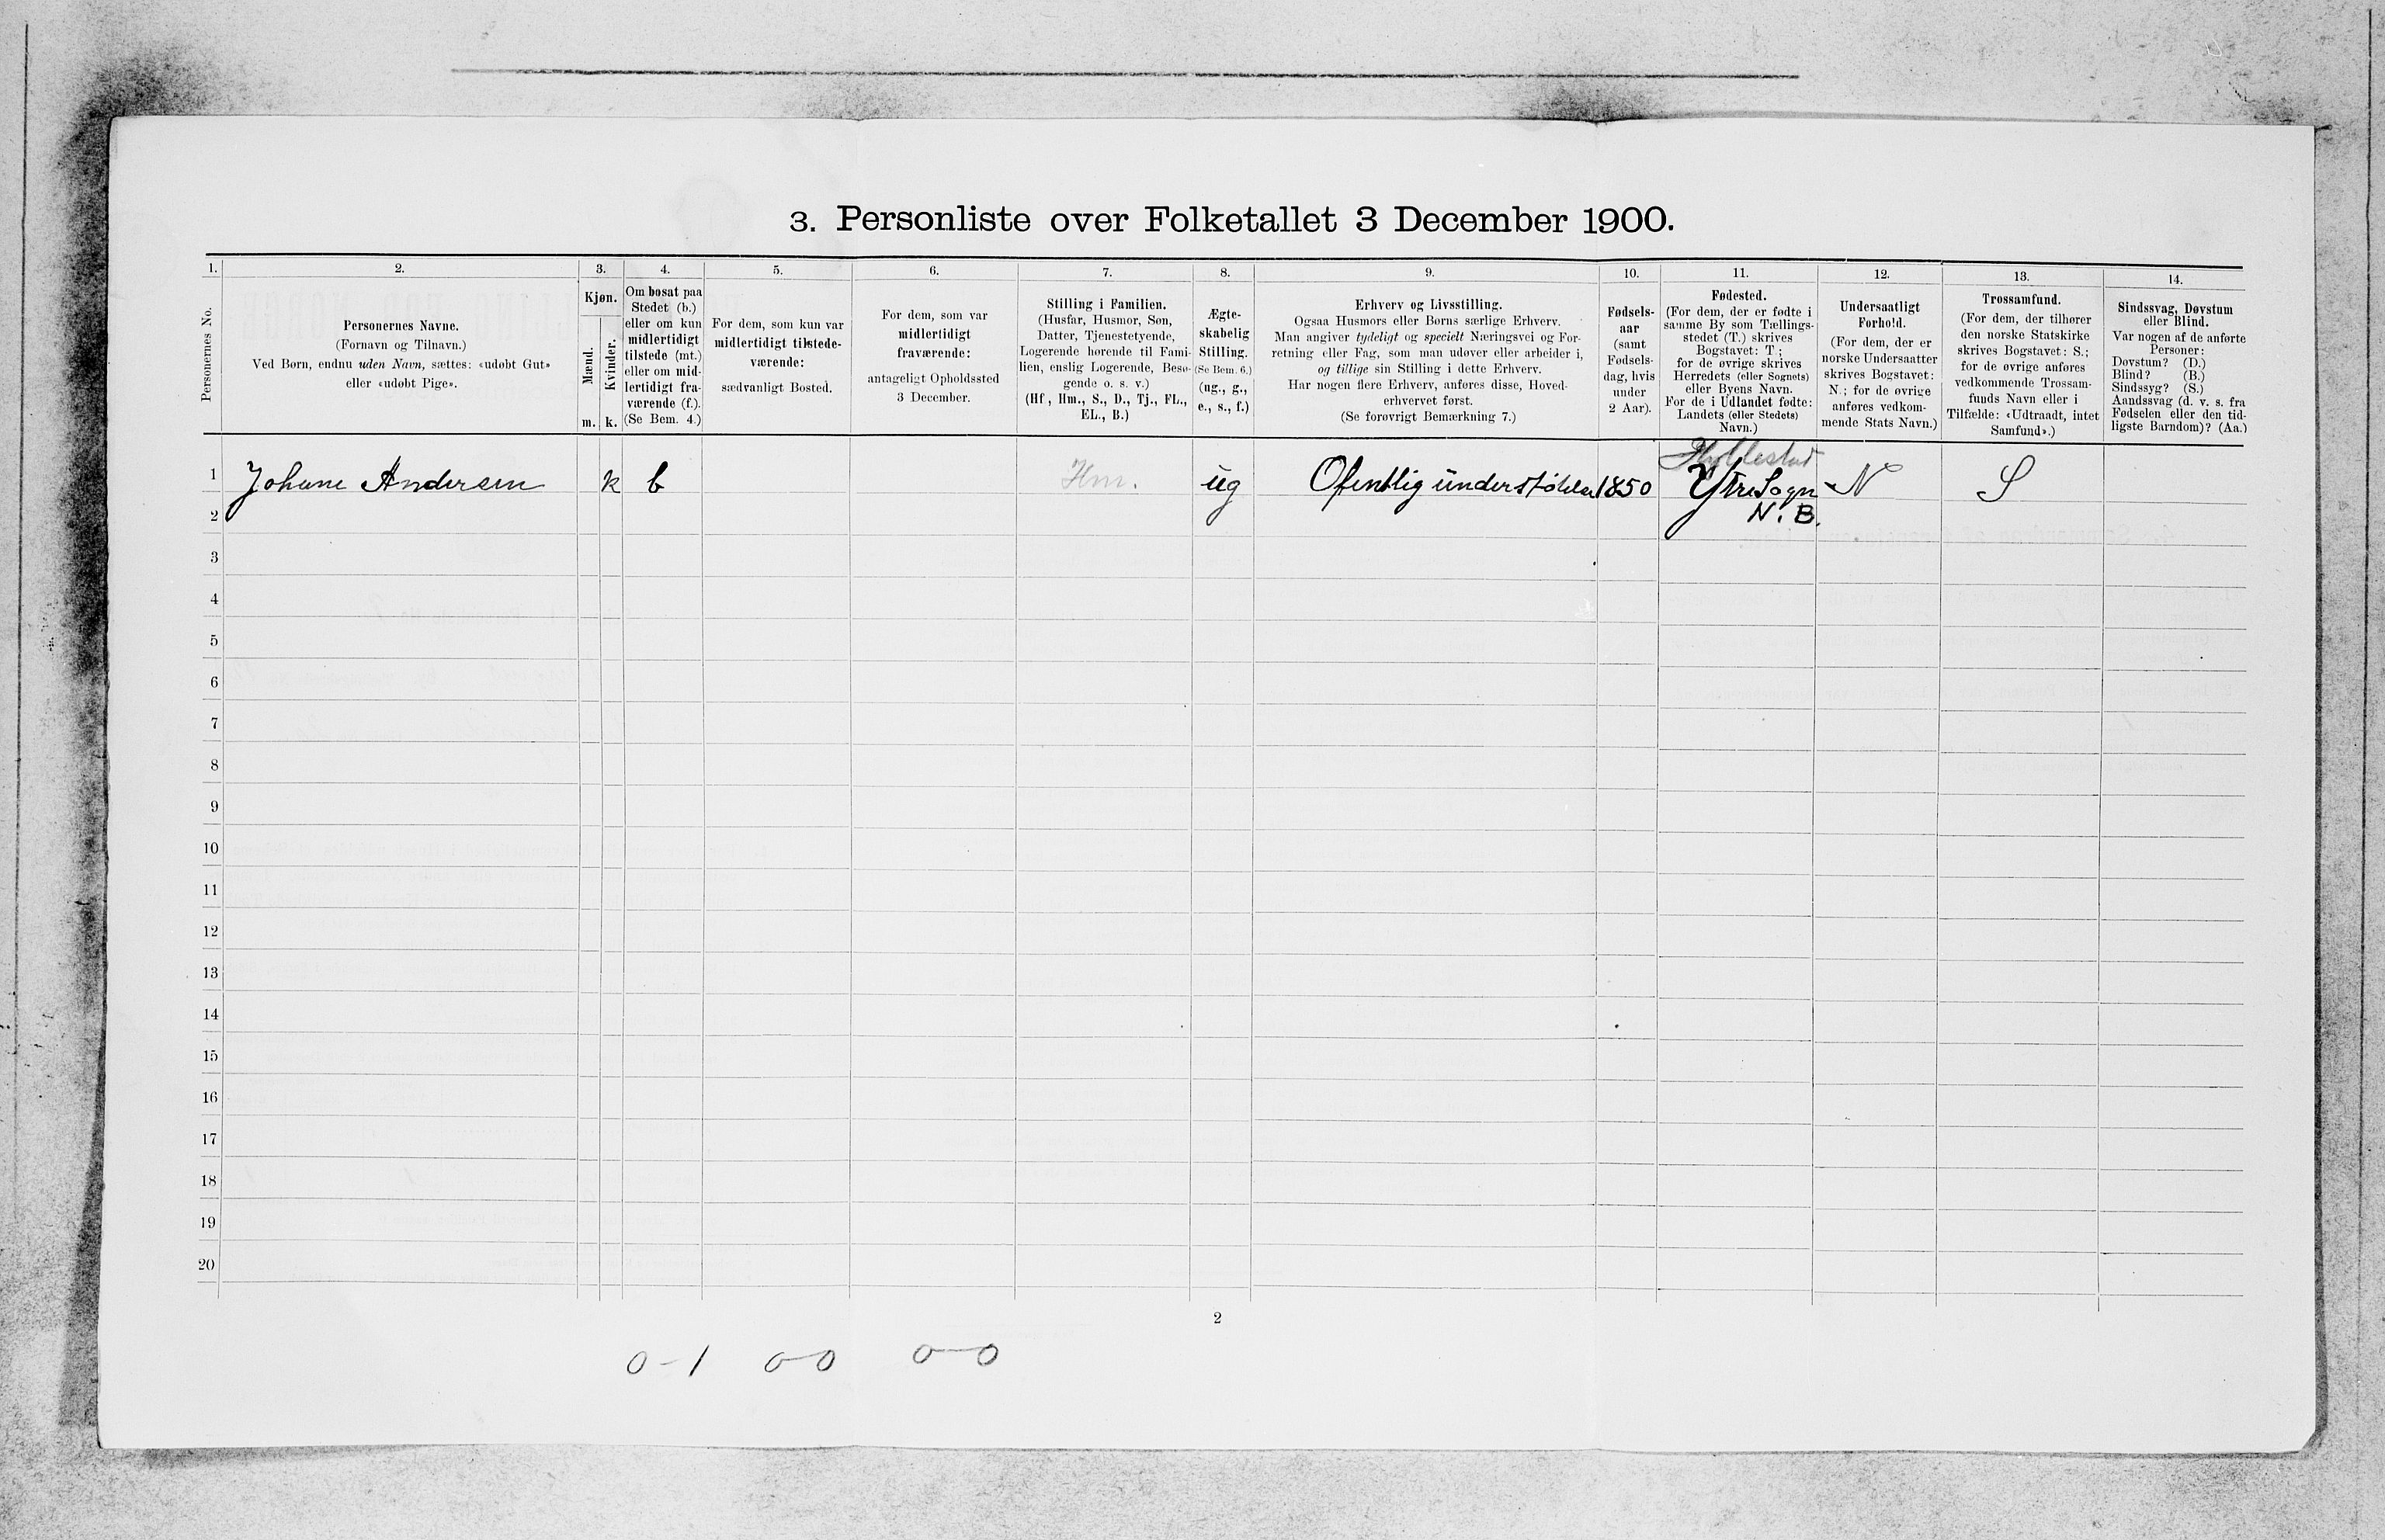 3. Personliste over Folketallet 3 December 1900.
1. 2. 3. 4. 5. 6. 7. 8. 9. 10. 11. 12. 13. 14.
Personernes No.
Personernes Navne.
(Fornavn og Tilnavn.)
Ved Børn, endnu uden Navn, sættes: «udøbt Gut»
eller «udøbt Pige».
Kjøn.
Mænd.
Kvinder.
m. k.
Om bosat paa
Stedet (b.)
eller om kun
midlertidigt
tilstede (mt.)
eller om mid-
lertidigt fra-
værende (f.).
(Se Bem. 4.)
For dem, som kun var
midlertidigt tilstede-
værende:
sædvanligt Bosted.
For dem, som var
midlertidigt
fraværende:
antageligt Opholdssted
3 December.
Stilling i Familien.
(Husfar, Husmor, Søn,
Datter, Tjenestetyende,
Logerende hørende til Fami-
lien, enslig Logerende, Besø-
gende o. s. v.)
(Hf, Hm., S., D., Tj., FL.,
EL., B.)
Ægte-
skabelig
Stilling.
(Se Bem. 6.)
(ug., g.,
e., s., f.)
Erhverv og Livsstilling.
Ogsaa Husmors eller Børns særlige Erhverv.
Man angiver tydeligt og specielt Næringsvei og For-
retning eller Fag, som man udøver eller arbeider i,
og tillige sin Stilling i dette Erhverv.
Har nogen flere Erhverv, anføres disse, Hoved-
erhvervet først.
(Se forøvrigt Bemærkning 7.)
Fødsels-
aar
(samt
Fødsels-
dag, hvis
under
2 Aar).
Fødested.
(For dem, der er fødte i
samme By som Tællings-
stedet (T.) skrives
Bogstavet: T;
for de øvrige skrives
Herredets (eller Sognets)
eller Byens Navn.
For de i Udlandet fødte:
Landets (eller Stedets)
Navn.)
Undersaatligt
Forhold.
(For dem, der er
norske Undersaatter
skrives Bogstavet:
N.; for de øvrige
anføres vedkom-
mende Stats Navn.)
Trossamfund.
(For dem, der tilhører
den norske Statskirke
skrives Bogstavet: S.;
for de øvrige anføres
vedkommende Trossam-
funds Navn eller i
Tilfælde: «Udtraadt, intet
Samfund».)
Sindssvag, Døvstum
eller Blind.
Var nogen af de anførte
Personer:
Døvstum? (D.)
Blind? (B.)
Sindssyg? (S.)
Aandssvag (d. v. s. fra
Fødselen eller den tid-
ligste Barndom)? (Aa.)
Hyllestad
1 Johane Andersen k b Hm. ug Ofentlig understøttelse 1850 Ytre Sogn N S
N. B.
2
3
4
5
6
7
8
9
10
11
12
13
14
15
16
17
18
19
20
2
0-1 0-0 0-0